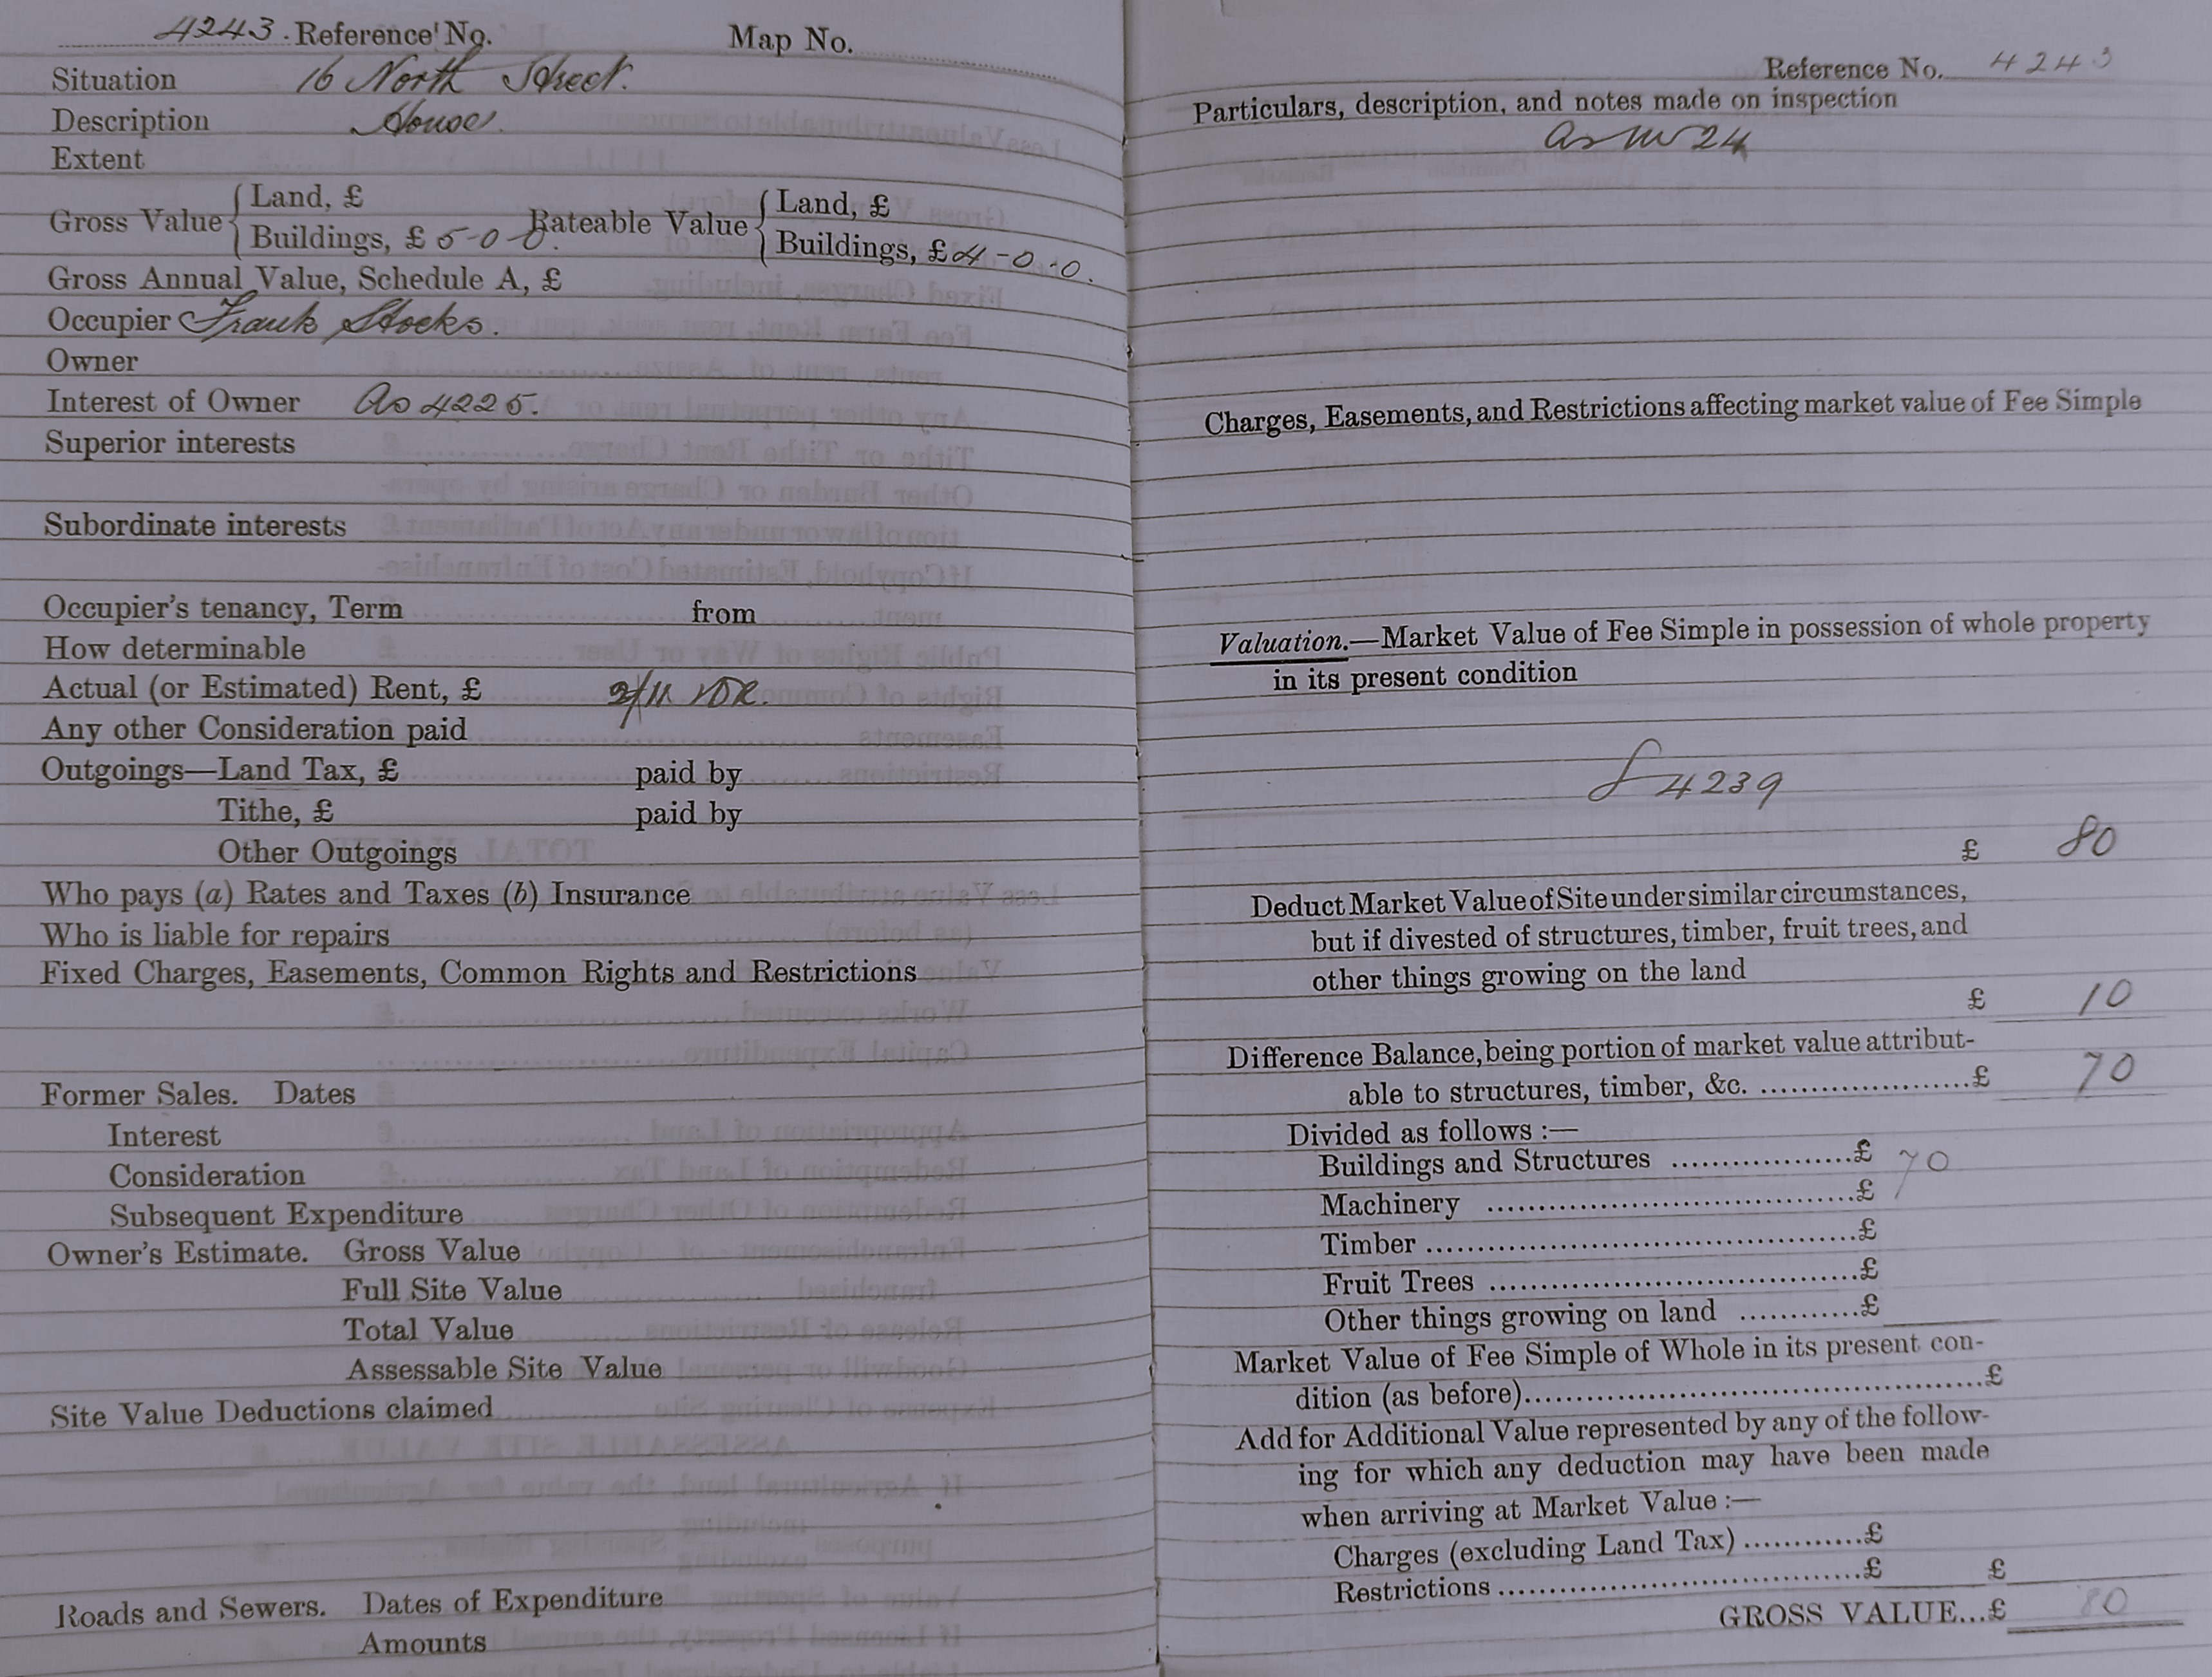 4243. Reference No. Map No.
Situation 16 North Street.
Description House.
Extent
Gross Value { Land, £
Buildings, £ 5-0-0. Rateable Value { Land, £
Buildings, £ 4-0-0.
Gross Annual Value, Schedule A, £
Occupier Frank Stocks.
Owner
Interest of Owner As 4225.
Superior interests
Subordinate interests
Occupier's tenancy, Term from
How determinable
Actual (or Estimated) Rent, £
Any other Consideration paid
Outgoings—Land Tax, £ paid by
Tithe, £ paid by
Other Outgoings
Who pays (a) Rates and Taxes (b) Insurance
Who is liable for repairs
Fixed Charges, Easements, Common Rights and Restrictions
Former Sales. Dates
Interest
Consideration
Subsequent Expenditure
Owner's Estimate. Gross Value
Full Site Value
Total Value
Assessable Site Value
Site Value Deductions claimed
Roads and Sewers. Dates of Expenditure
Amounts
Reference No. 4243
Particulars, description, and notes made on inspection
as 24
Charges, Easements, and Restrictions affecting market value of Fee Simple
Valuation.—Market Value of Fee Simple in possession of whole property
in its present condition
4239
£ 80
Deduct Market Value of Site under similar circumstances,
but if divested of structures, timber, fruit trees, and
other things growing on the land
£ 10
Difference Balance, being portion of market value attribut-
able to structures, timber, &c. ....................£ 70
Divided as follows :—
Buildings and Structures ..................£ 70
Machinery ....................................£
Timber ..........................................£
Fruit Trees ...................................£
Other things growing on land ............£
Market Value of Fee Simple of Whole in its present con-
dition (as before)..............................................£
Add for Additional Value represented by any of the follow-
ing for which any deduction may have been made
when arriving at Market Value :—
Charges (excluding Land Tax) ............£
Restrictions ....................................£ £
GROSS VALUE...£ 80